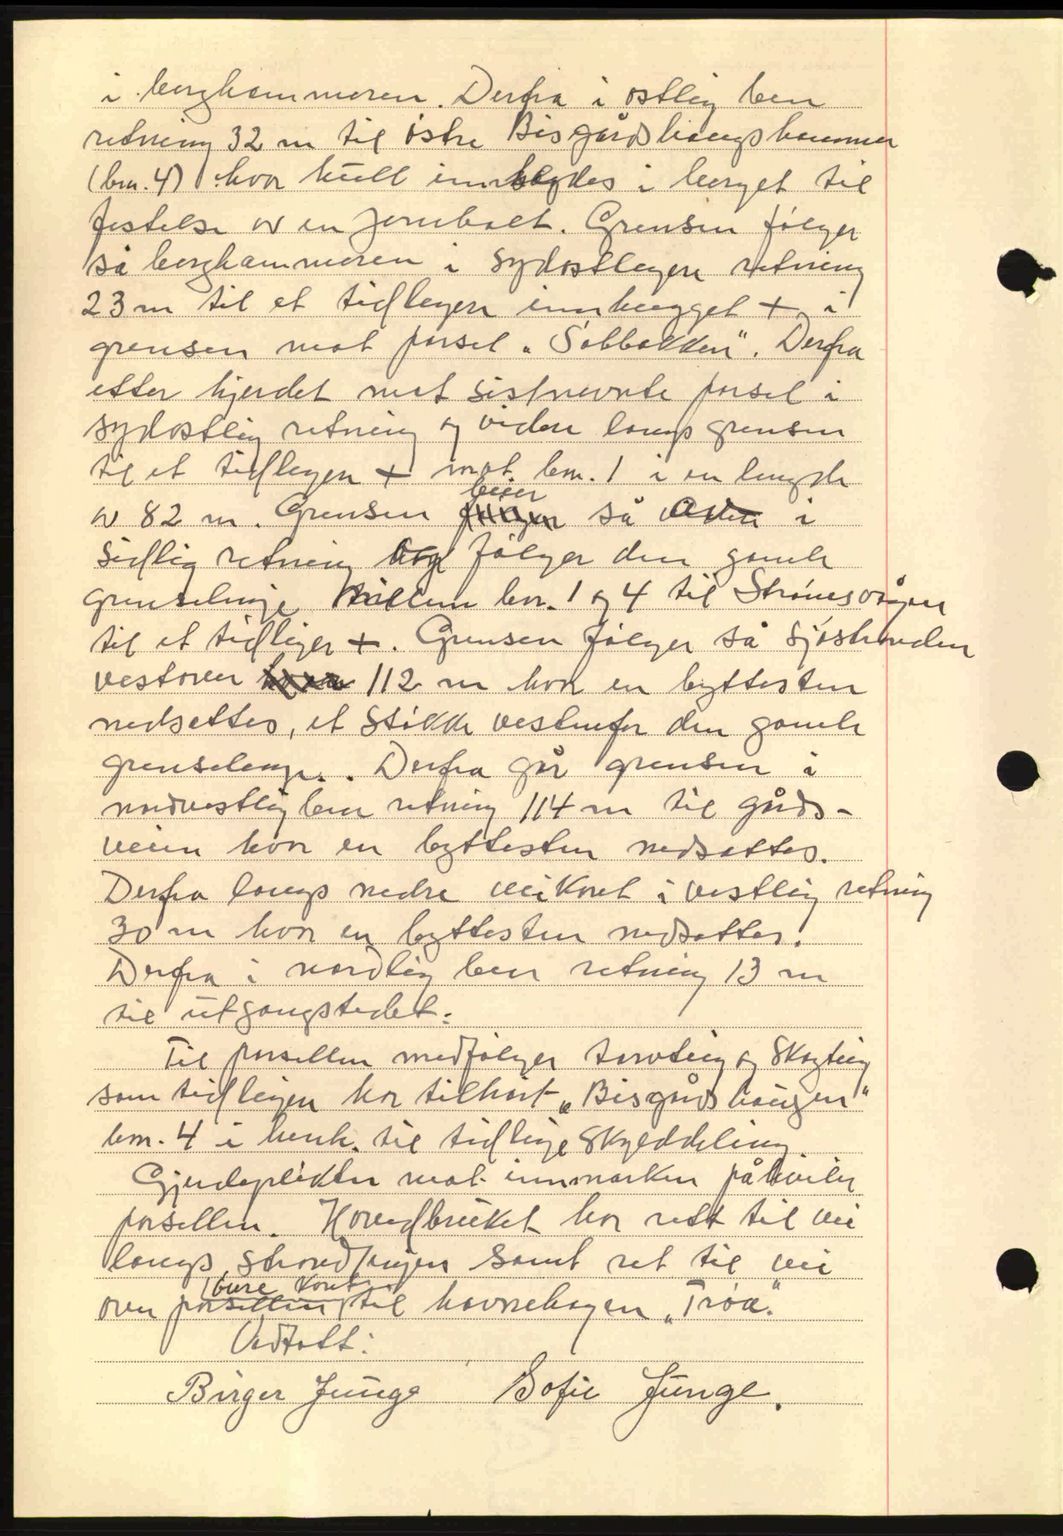 i berghammeren. Derfra i ostlig ben
retning 32 m til östre Bisgårdshaugshammer
(brn. 4) hvor hull innhugges i berget til
festelse av en jernbolt. Grensen følger
så berghammeren i sydostlegen retning
23 m til et tidligere innhugget + i
grensen mot parsel „Solbakken". Derfra
etter gjerdet mot sistnevnte parsel i
sydostlig retning og videre langs grensen
til et tidligere + mot brn. 1 i en lengde
av 82 m. Grensen beier så i
sidlig retning følger den gamle
grenselinje mellem brn. 1 og 4 til Strømsvågen
til et tidliger +. Grensen følger så sjöstranden
vestover 112 m hvor en byttesten
nedsettes, et stökke vestenfor den gamle
grenselinje. Derfra går grensen i
nordvestlig ben retning 114 m til gårds-
veien hvor en byttesten nedsettes.
Derfra langs nedre veikant i vestlig retning
30 m hvor en byttesten nedsettes.
Derfra i nordlig ben retning 13 m
til utgangstedet.
Til parsellen medfølger torvteig og skogteig
som tidligere har tilhört „Bisgårdshaugen"
brn. 4 i henh. til tidlige skylddeling
Gjerdeplikten mot innmarken påhviler
parsellen. Hovedbruket har rett til vei
langs strandlinjen samt ret til vei
over parsellens kant til havnehagen „Trøa".
Vedtatt:
Birger Junge Sofie Junge.